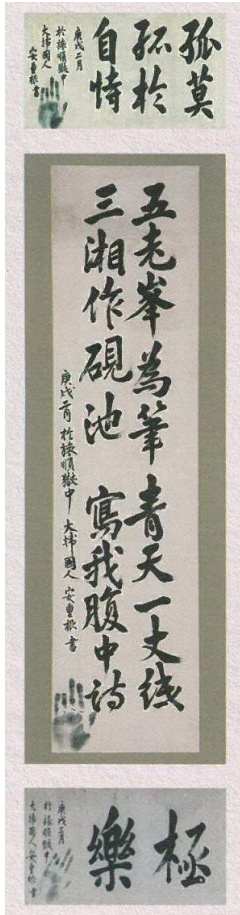 孤莫
孤於
自恃
庚戌三月
於旅順獄中
大韓國人 安重根書
五老峯為筆 青天一丈紙
三湘作硯池 寫我腹中詩
庚戌二月 於旅順獄中 大韓國人 安重根 書
極
樂
庚戌三月
於旅順獄中
大韓國人 安重根 書